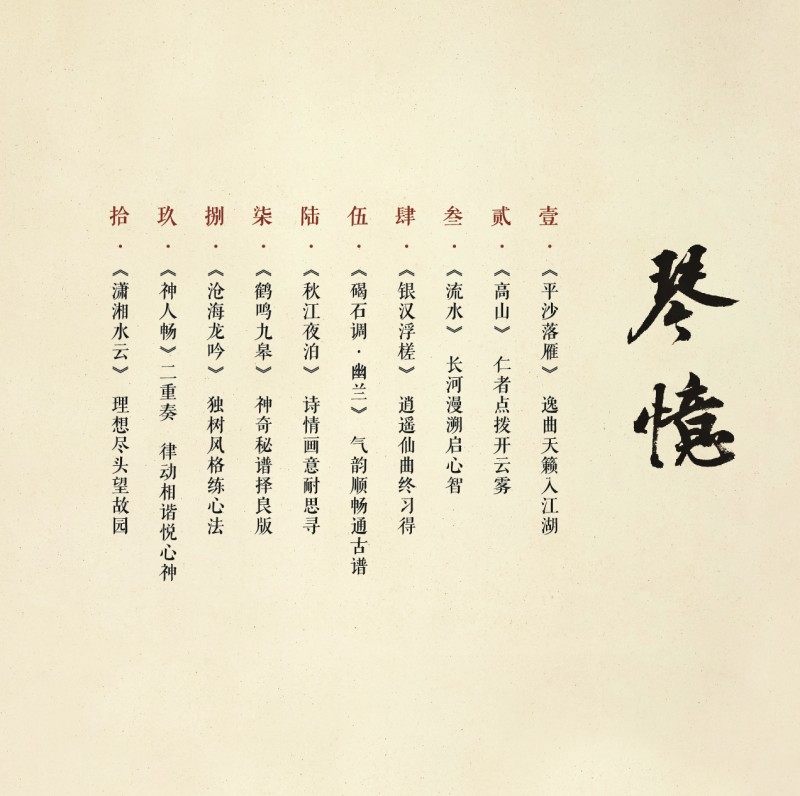 琴憶
壹·《平沙落雁》 逸曲天籁入江湖
贰·《高山》 仁者点拨开云雾
叁·《流水》 长河漫溯启心智
肆·《银汉浮槎》 逍遥仙曲终习得
伍·《碣石调·幽兰》 气韵顺畅通古谱
陆·《秋江夜泊》 诗情画意耐思寻
柒·《鹤鸣九皋》 神奇秘谱择良版
捌·《沧海龙吟》 独树风格练心法
玖·《神人畅》二重奏 律动相谐悦心神
拾·《潇湘水云》 理想尽头望故园